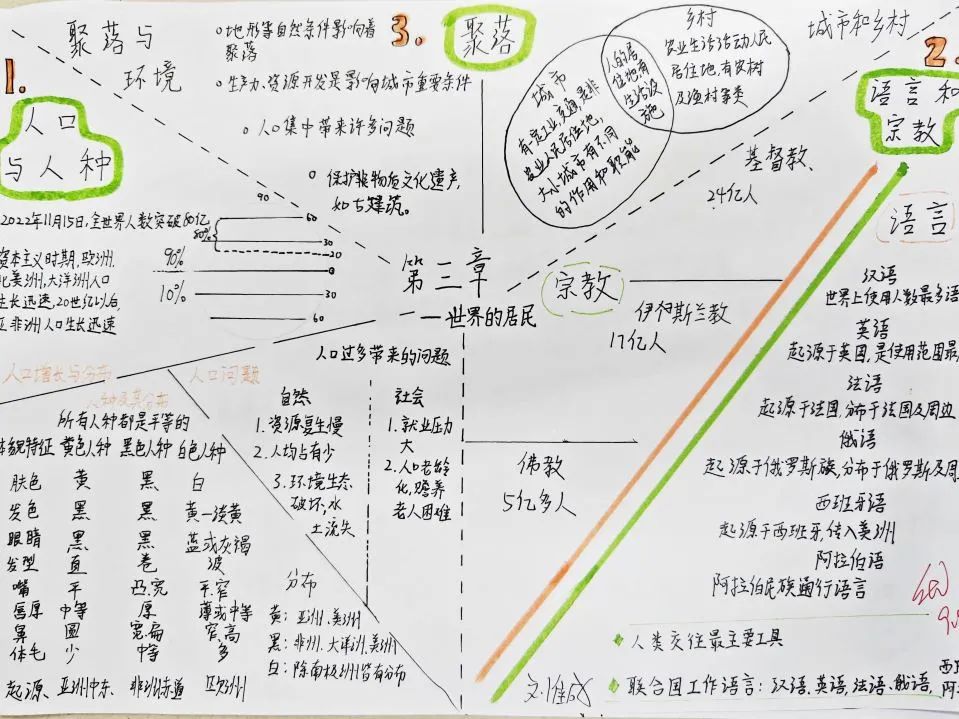 聚落与
环境
1.
人口
与人种
2022年11月15日,全世界人数突破80亿
资本主义时期,欧洲.
北美洲,大洋洲人口
生长迅速,20世纪以后,
亚非洲人口生长迅速
90
60
80%
30
20
90%
0
10%
30
60
人口增长与分布
人种及其分布
人口问题
所有人种都是平等的
体貌特征 黄色人种 黑色人种 白色人种
肤色 黄 黑 白
发色 黑 黑 黄—淡黄
眼睛 黑 黑 蓝或灰褐
发型 直 卷 波
嘴 平 凸.宽 平.窄
唇厚 中等 厚 薄或中等
鼻 圆 宽.扁 窄.高
体毛 少 中等 多
起源、亚洲中东、非洲赤道 欧洲
人口过多带来的问题
自然
1.资源复生慢
2.人均占有少
3.环境生态
破坏,水
土流失
社会
1.就业压力
大
2.人口老龄
化,赡养
老人困难
分布
黄:亚洲.美洲
黑:非洲.大洋洲.美洲
白:除南极洲皆有分布
3.
聚落
地形等自然条件影响着
聚落
生产力、资源开发是影响城市重要条件
人口集中带来许多问题
保护非物质文化遗产,
如古建筑。
第三章
—世界的居民
城市和乡村
城市
有定工业,交通,是非
农业人民居住地,
大小城市有不同
的作用和职能
人的居
住地,有
生活设
施
乡村
农业生活活动人民
居住地.有农村
及渔村等类
2.
语言和
宗教
宗教
基督教.
24亿人
伊斯兰教
17亿人
佛教
5亿多人
语言
汉语
世界上使用人数最多语
英语
起源于英国,是使用范围最
法语
起源于法国,分布于法国及周边
俄语
起源于俄罗斯族,分布于俄罗斯及周
西班牙语
起源于西班牙,传入美洲
阿拉伯语
阿拉伯民族通行语言
人类交往最主要工具
联合国工作语言:汉语,英语,法语、俄语,
西班
阿